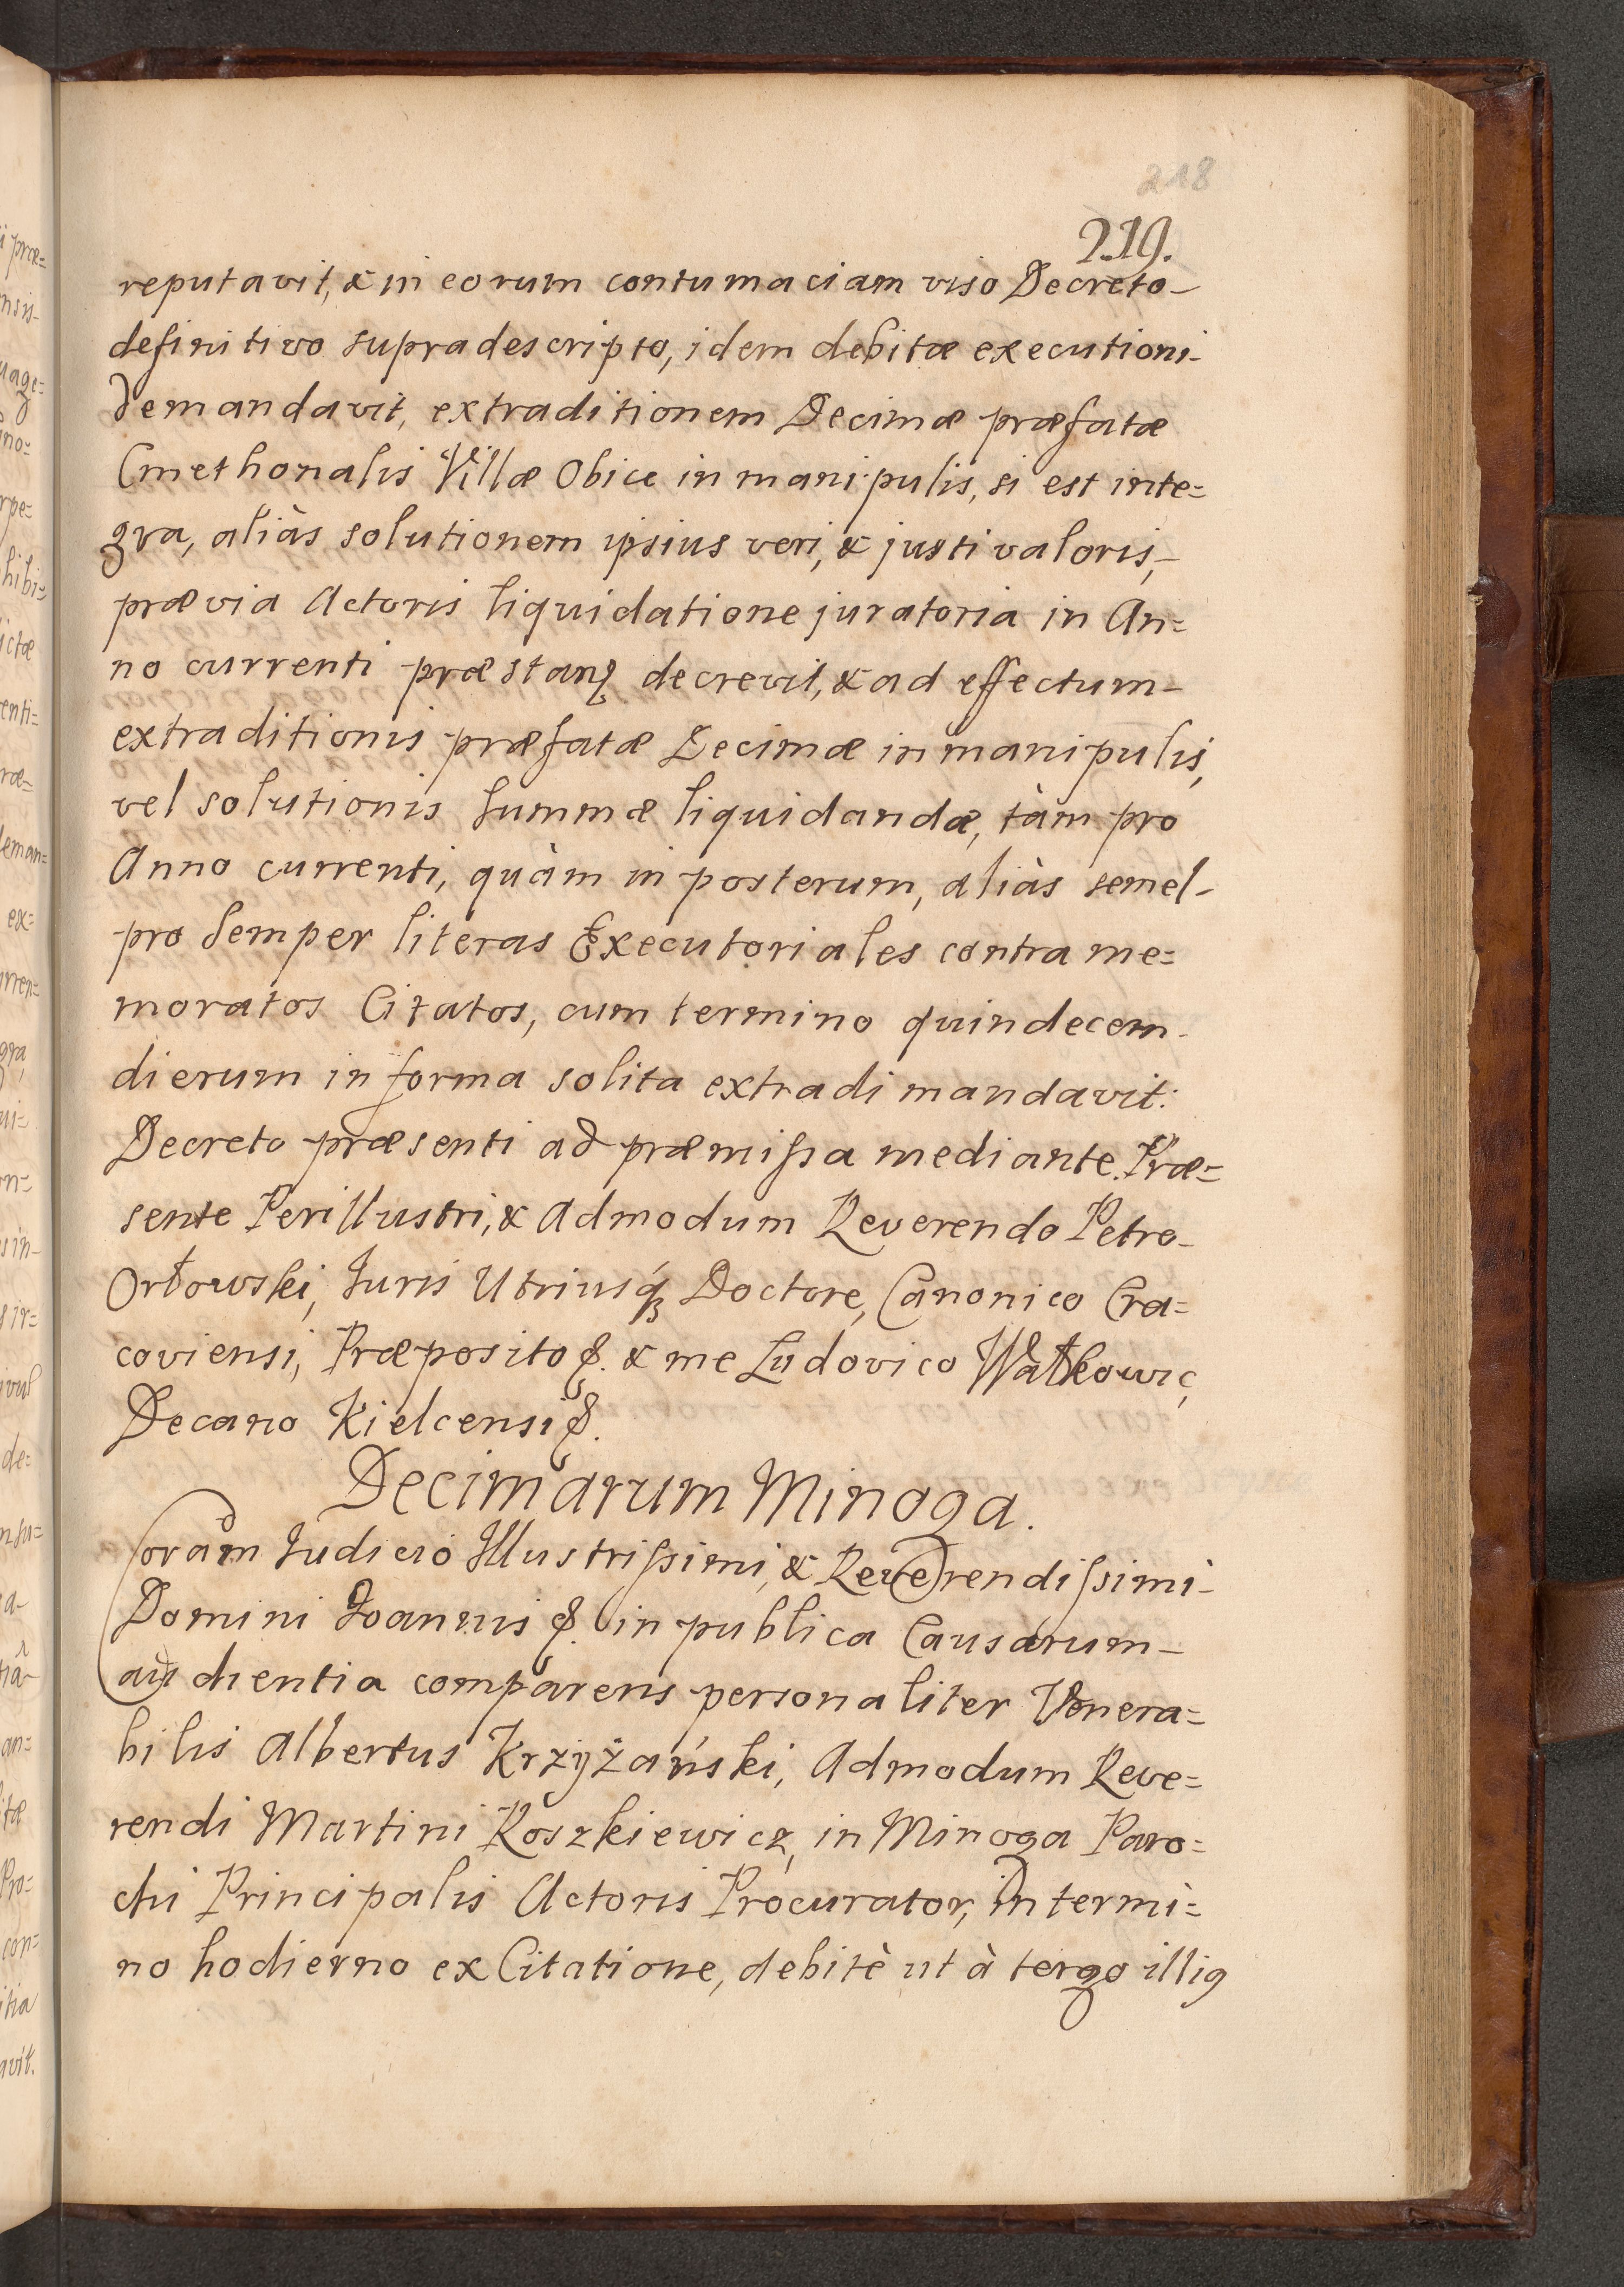 218
219.
reputavit, & in eorum contumaciam viso Decreto-
definitivo supradescripto, idem debitæ executioni-
demandavit, extraditionem Decimæ præfatæ
Cmethonalis Villæ Obice in manipulis, si est inte=
gra, aliàs solutionem ipsius veri, & justi valoris,-
prævia Actoris liquidatione juratoria in An=
no currenti præstanꝫ decrevit, & ad effectum-
extraditionis præfatæ Decimæ in manipulis,
vel solutionis summæ liquidandæ, tàm pro
Anno currenti, quàm in posterum, aliàs semel-
pro semper literas Executoriales contra me=
moratos Citatos, cum termino quindecem-
dierum in forma solita extradi mandavit:
Decreto præsenti ad præmiſsa mediante. Præ=
sente Perillustri, & Admodum Reverendo Petro-
Orłowski, Juris Utriusqꝫ Doctore, Canonico Cra=
coviensi, Præposito &. & me Ludovico Wałkowic,
Decano Kielcensi &.
Decimarum Minoga.
Coram Judicio Illustriſsimi, & Reverendiſsimi-
Domini Joannis &. in publica Causarum-
audientia comparens personaliter Venera=
bilis Albertus Krzyżański, Admodum Reve=
rendi Martini Roszkiewicz, in Minoga Paro=
chi Principalis Actoris Procurator, in termi=
no hodierno ex Citatione, debitè ut à tergo illiꝰ